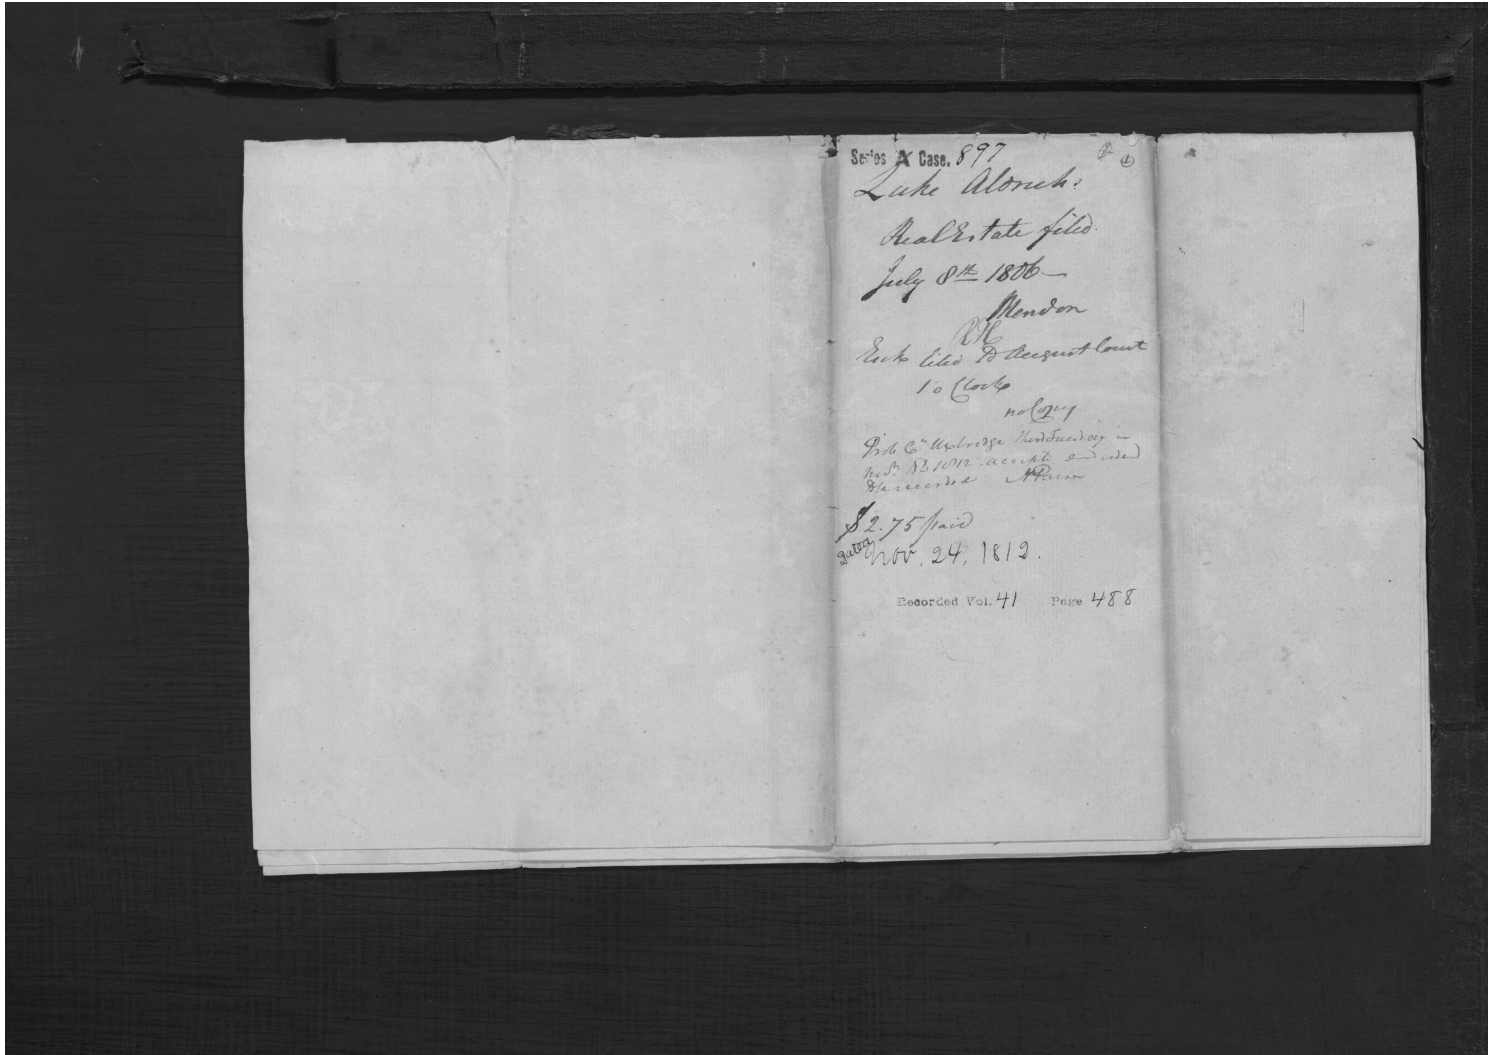 Series A Case. 897
Luke Aldrich.
Real Estate filed.
July 8th 1806
Mendon
filed August Court
no Copy
Prob Ct Uxbridge third Tuesday in
Novr AD 1812 accepted and ordered
to be recorded N Paine
$2.75 paid
Dated Nov. 24, 1812.
Recorded Vol. 41 Page 488